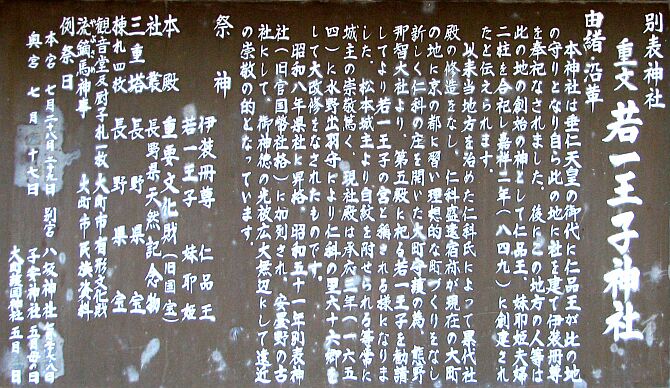 別表神社
重文 若一王子神社
由緒・沿革
本神社は垂仁天皇の御代に仁品王が此の地
の守りとなり自ら此の地に社を建て伊弉冊尊
を奉祀なされました。後にこの地方の人等は
此の地の創始の神として仁品王、妹耶姫夫婦
二柱を合祀し嘉祥二年(八四九)に創建され
たと伝えられます。
以来当地方を治めた仁科氏によって累代社
殿の修造をなし、仁科盛遠宿祢が現在の大町
の地に京の都に習い理想的な町づくりをなし
新しく仁科の庄を開いた大町守護の為、熊野
那智大社より、第五殿に祀る若一王子を勧請
してより若一王子の宮と称される様になりま
した。松本城主より自紋を附せられる等常に
城主の崇敬篤く、現社殿は承応三年(一六五
四)に水野出羽守により仁科の里六十六郷を
して大改修をなされたものです。
昭和八年県社に昇格、昭和五十一年別表神
社(旧官国幣社格)に加列され、安曇野の古
社にして、御神徳の光被広大無辺にして遠近
の崇敬の的となっています。
祭神
伊弉冊尊 仁品王
若一王子 妹耶姫
本殿 重要文化財(旧国宝)
社叢 長野県天然記念物
三重塔 長野県宝
棟札四枚 長野県宝
観音堂及厨子札一枚 大町市有形文化財
流鏑馬神事 大町市民族資料
例祭日
本宮 七月二十八・二十九日 別宮 八坂神社 七月七・八日
子安神社 五月母の日
奥宮 七月十七日
大町靖国神社 五月 日